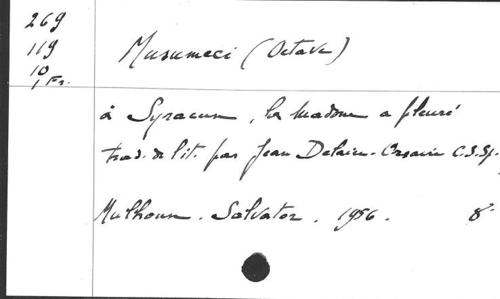 269
119
10
1 Fr.
Musumeci (Octave)
à Syracuse, la madone a pleuré
trad. de l'it. par Jean Delaire - C.S.Sp.
Mulhouse. Salvator. 1956. 8°